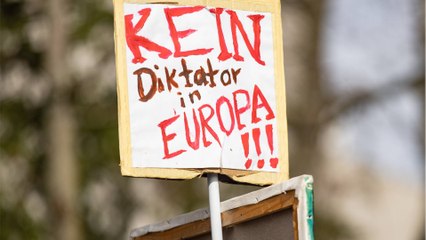 KEIN
Diktator
in
EUROPA
!!!